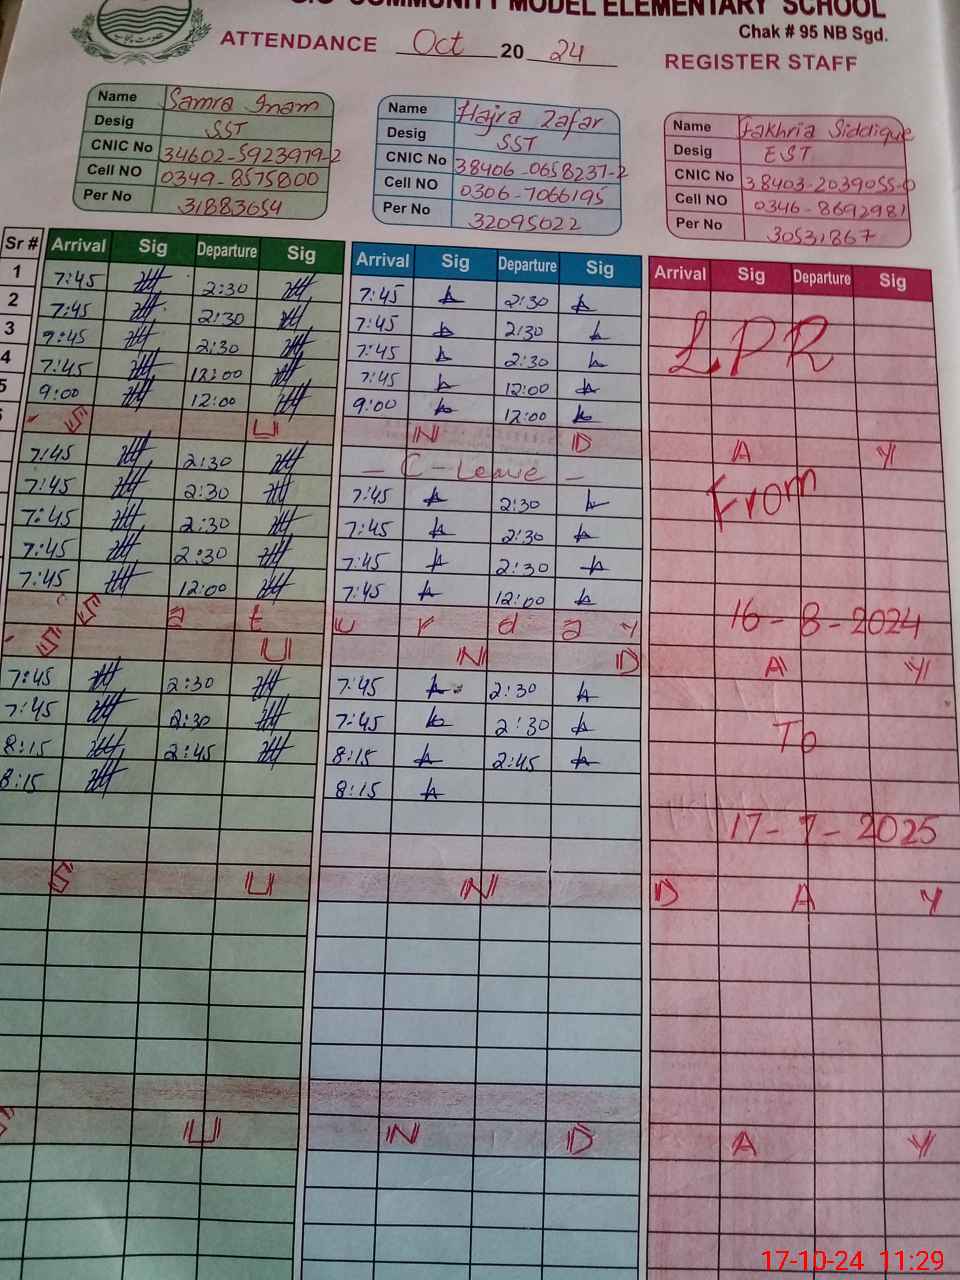 COMMUNITY MODEL ELEMENTARY SCHOOL
Chak # 95 NB Sgd.
ATTENDANCE Oct 20 24 REGISTER STAFF
Name Samra Inam
Desig SST
CNIC No 34602-5923979-2
Cell NO 0349-8575800
Per No 31883654
Name Hajra Zafar
Desig SST
CNIC No 38406-0658237-2
Cell NO 0306-7066195
Per No 32095022
Name Fakhria Siddique
Desig EST
CNIC No 38403-2039055-0
Cell NO 0346-8692981
Per No 30531867
Sr # Arrival Sig Departure Sig Arrival Sig Departure Sig Arrival Sig Departure Sig
1 7:45 2:30 7:45 2:30
2 7:45 2:30 7:45 2:30
3 9:45 2:30 7:45 2:30 LPR
4 7:45 12:00 7:45 12:00
5 9:00 12:00 9:00 12:00
S U N D A Y
7:45 2:30 - C-Leave - From
7:45 2:30 7:45 2:30
7:45 2:30 7:45 2:30
7:45 2:30 7:45 2:30
7:45 12:00 7:45 12:00
S a t u r d a y 16-8-2024
S U N D A Y
7:45 2:30 7:45 2:30
7:45 2:30 7:45 2:30 To
8:15 2:45 8:15 2:45
8:15 8:15
17-7-2025
S U N D A Y
S U N D A Y
17-10-24 11:29